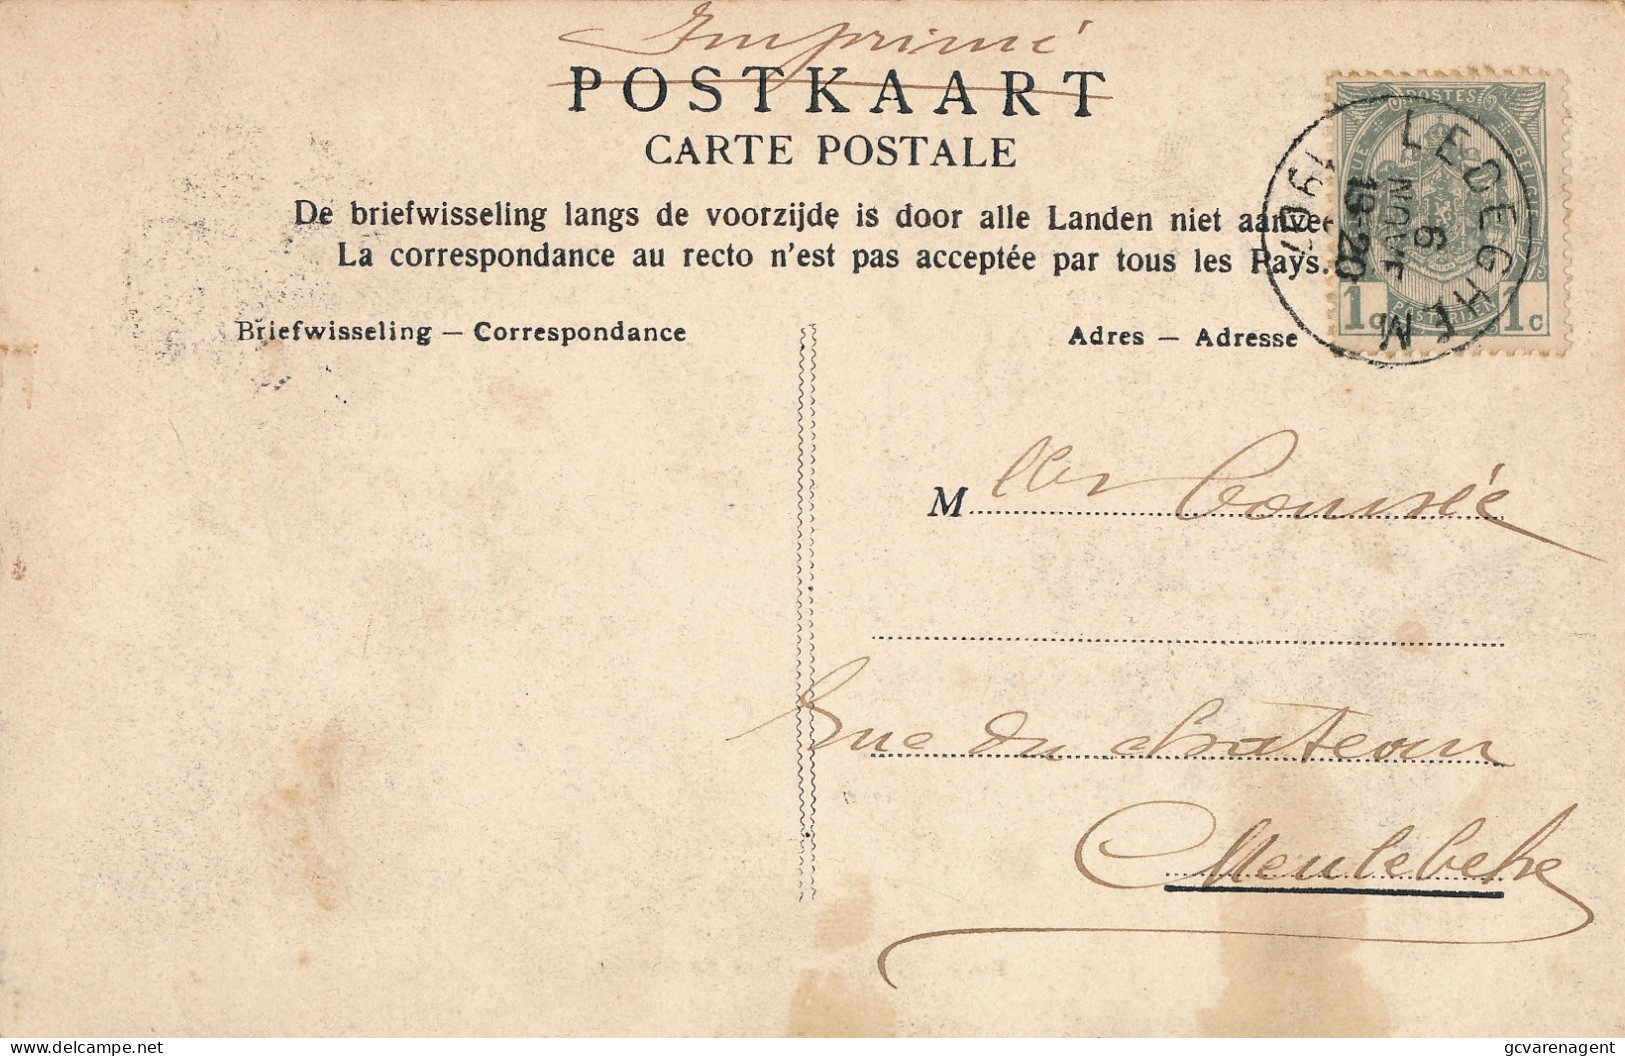 Imprimé
POSTKAART
CARTE POSTALE
De briefwisseling langs de voorzijde is door alle Landen niet aanvee
La correspondance au recto n'est pas acceptée par tous les Pays.
Briefwisseling — Correspondance
Adres — Adresse
POSTES
BELGIË
1c 1c
LEDEGHEM
6 NOV
18-20
M lles
Rue du chateau
Meulebeke
delcampe.net
gcvarenagent